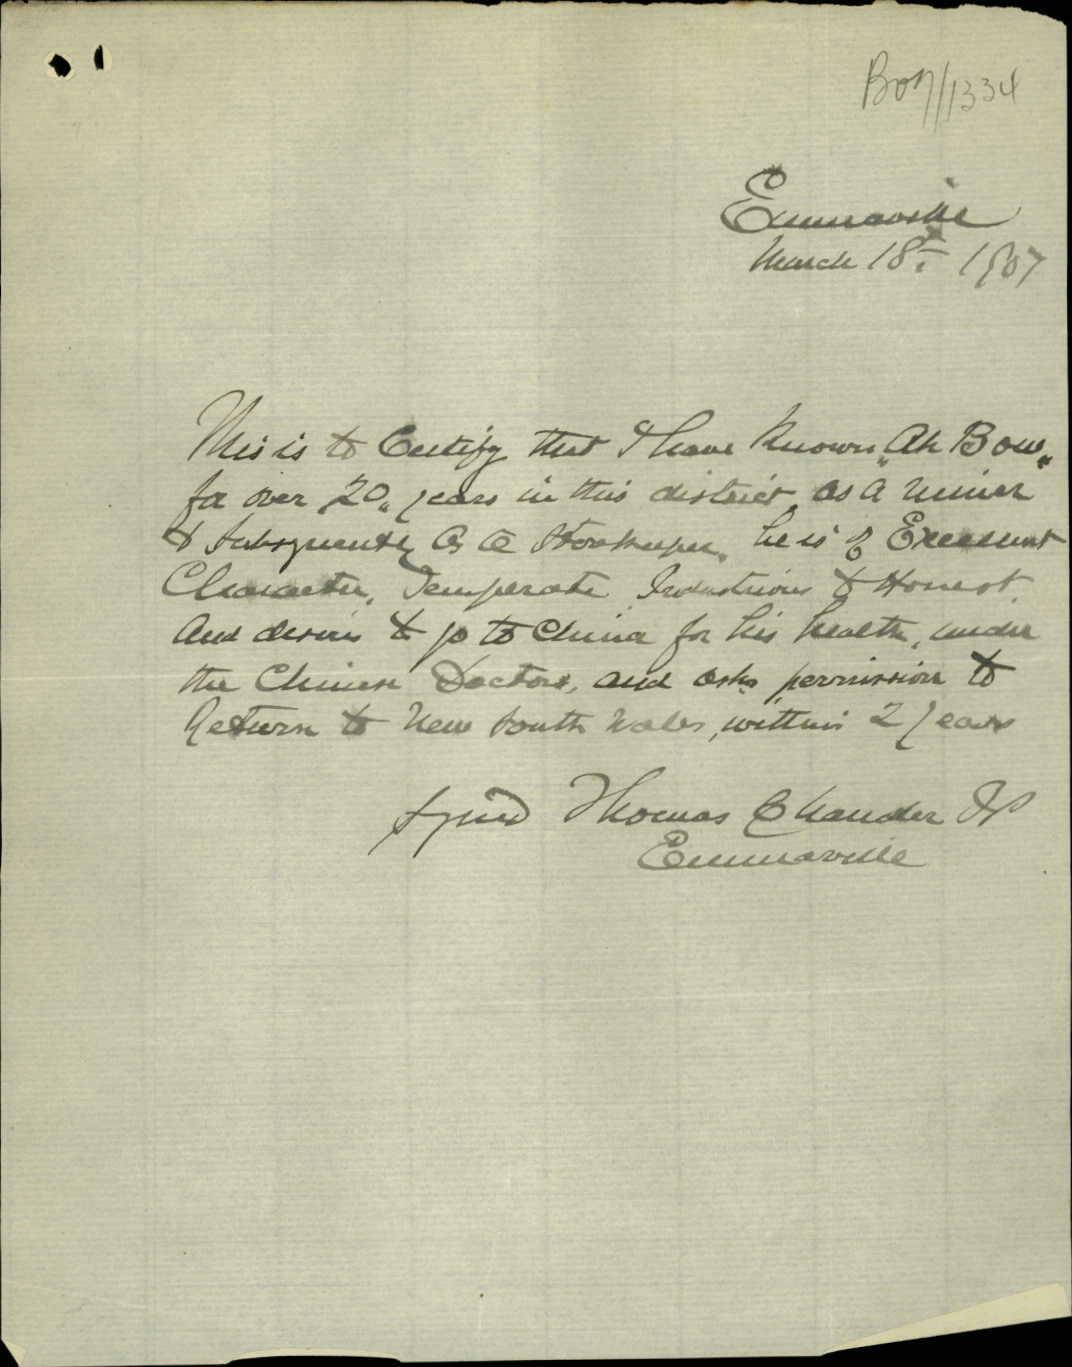 B07/1334
Emmaville
March 18th 1907
This is to Certify that I have Known "Ah Bow"
for over 20 years in this district as a Miner
& Subsequently as a Storekeeper, he is of Excellent
Character, Temperate Industrious & Honest,
and desires to go to China for his health, under
the Chinese Doctors, and asks permission to
Return to New South Wales, within 2 years
Signed Thomas Chander JP
Emmaville